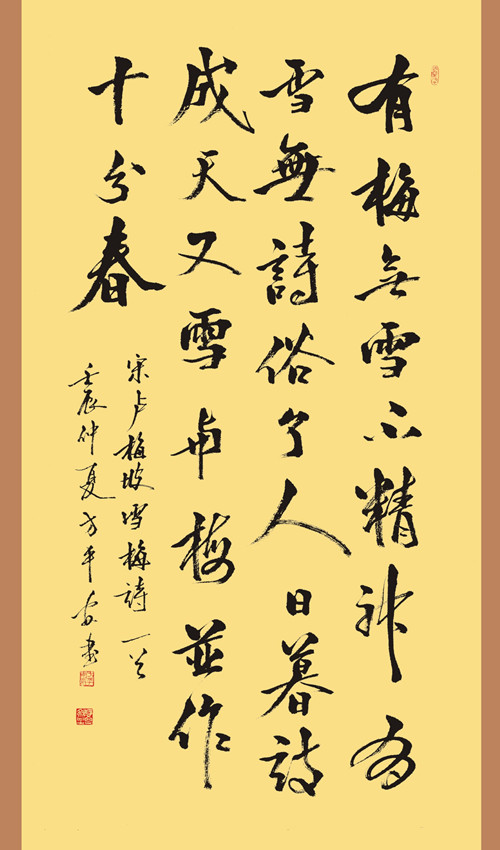 有梅无雪不精神有
雪無詩俗了人日暮詩
成天又雪与梅並作
十分春
宋卢梅坡雪梅詩一首
壬辰仲夏方平書